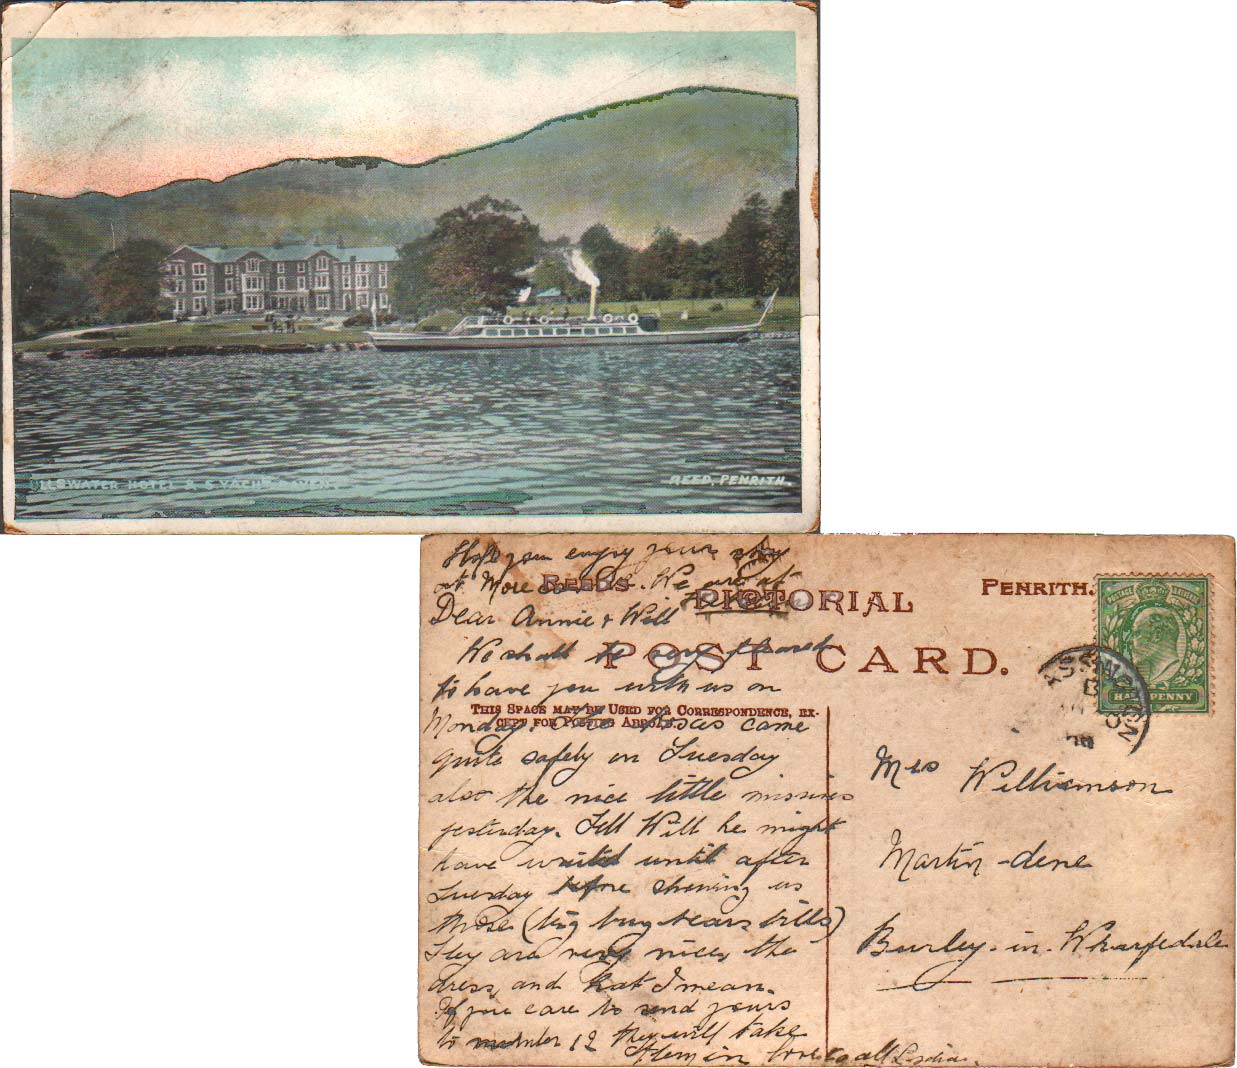 ULLSWATER HOTEL & S. YACHT RAVEN.
REED, PENRITH.
Hope you enjoy your stay
at More. We are at
REED'S PICTORIAL PENRITH.
POST CARD.
THIS SPACE MAY BE USED FOR CORRESPONDENCE, EX-
CEPT FOR POSTING ABROAD.
HALFPENNY
Dear Annie & Will
We shall be very pleased
to have you with us on
Monday. The came
quite safely on Tuesday
also the nice little missives
yesterday. Tell Will he might
have waited until after
Tuesday before showing us
those (big bills)
They are very nice, the
dress, and hat I mean.
If you care to send yours
to number 12 they will take
them in love to all
Mrs Williamson
Martin-dene
Burley-in-Wharfedale